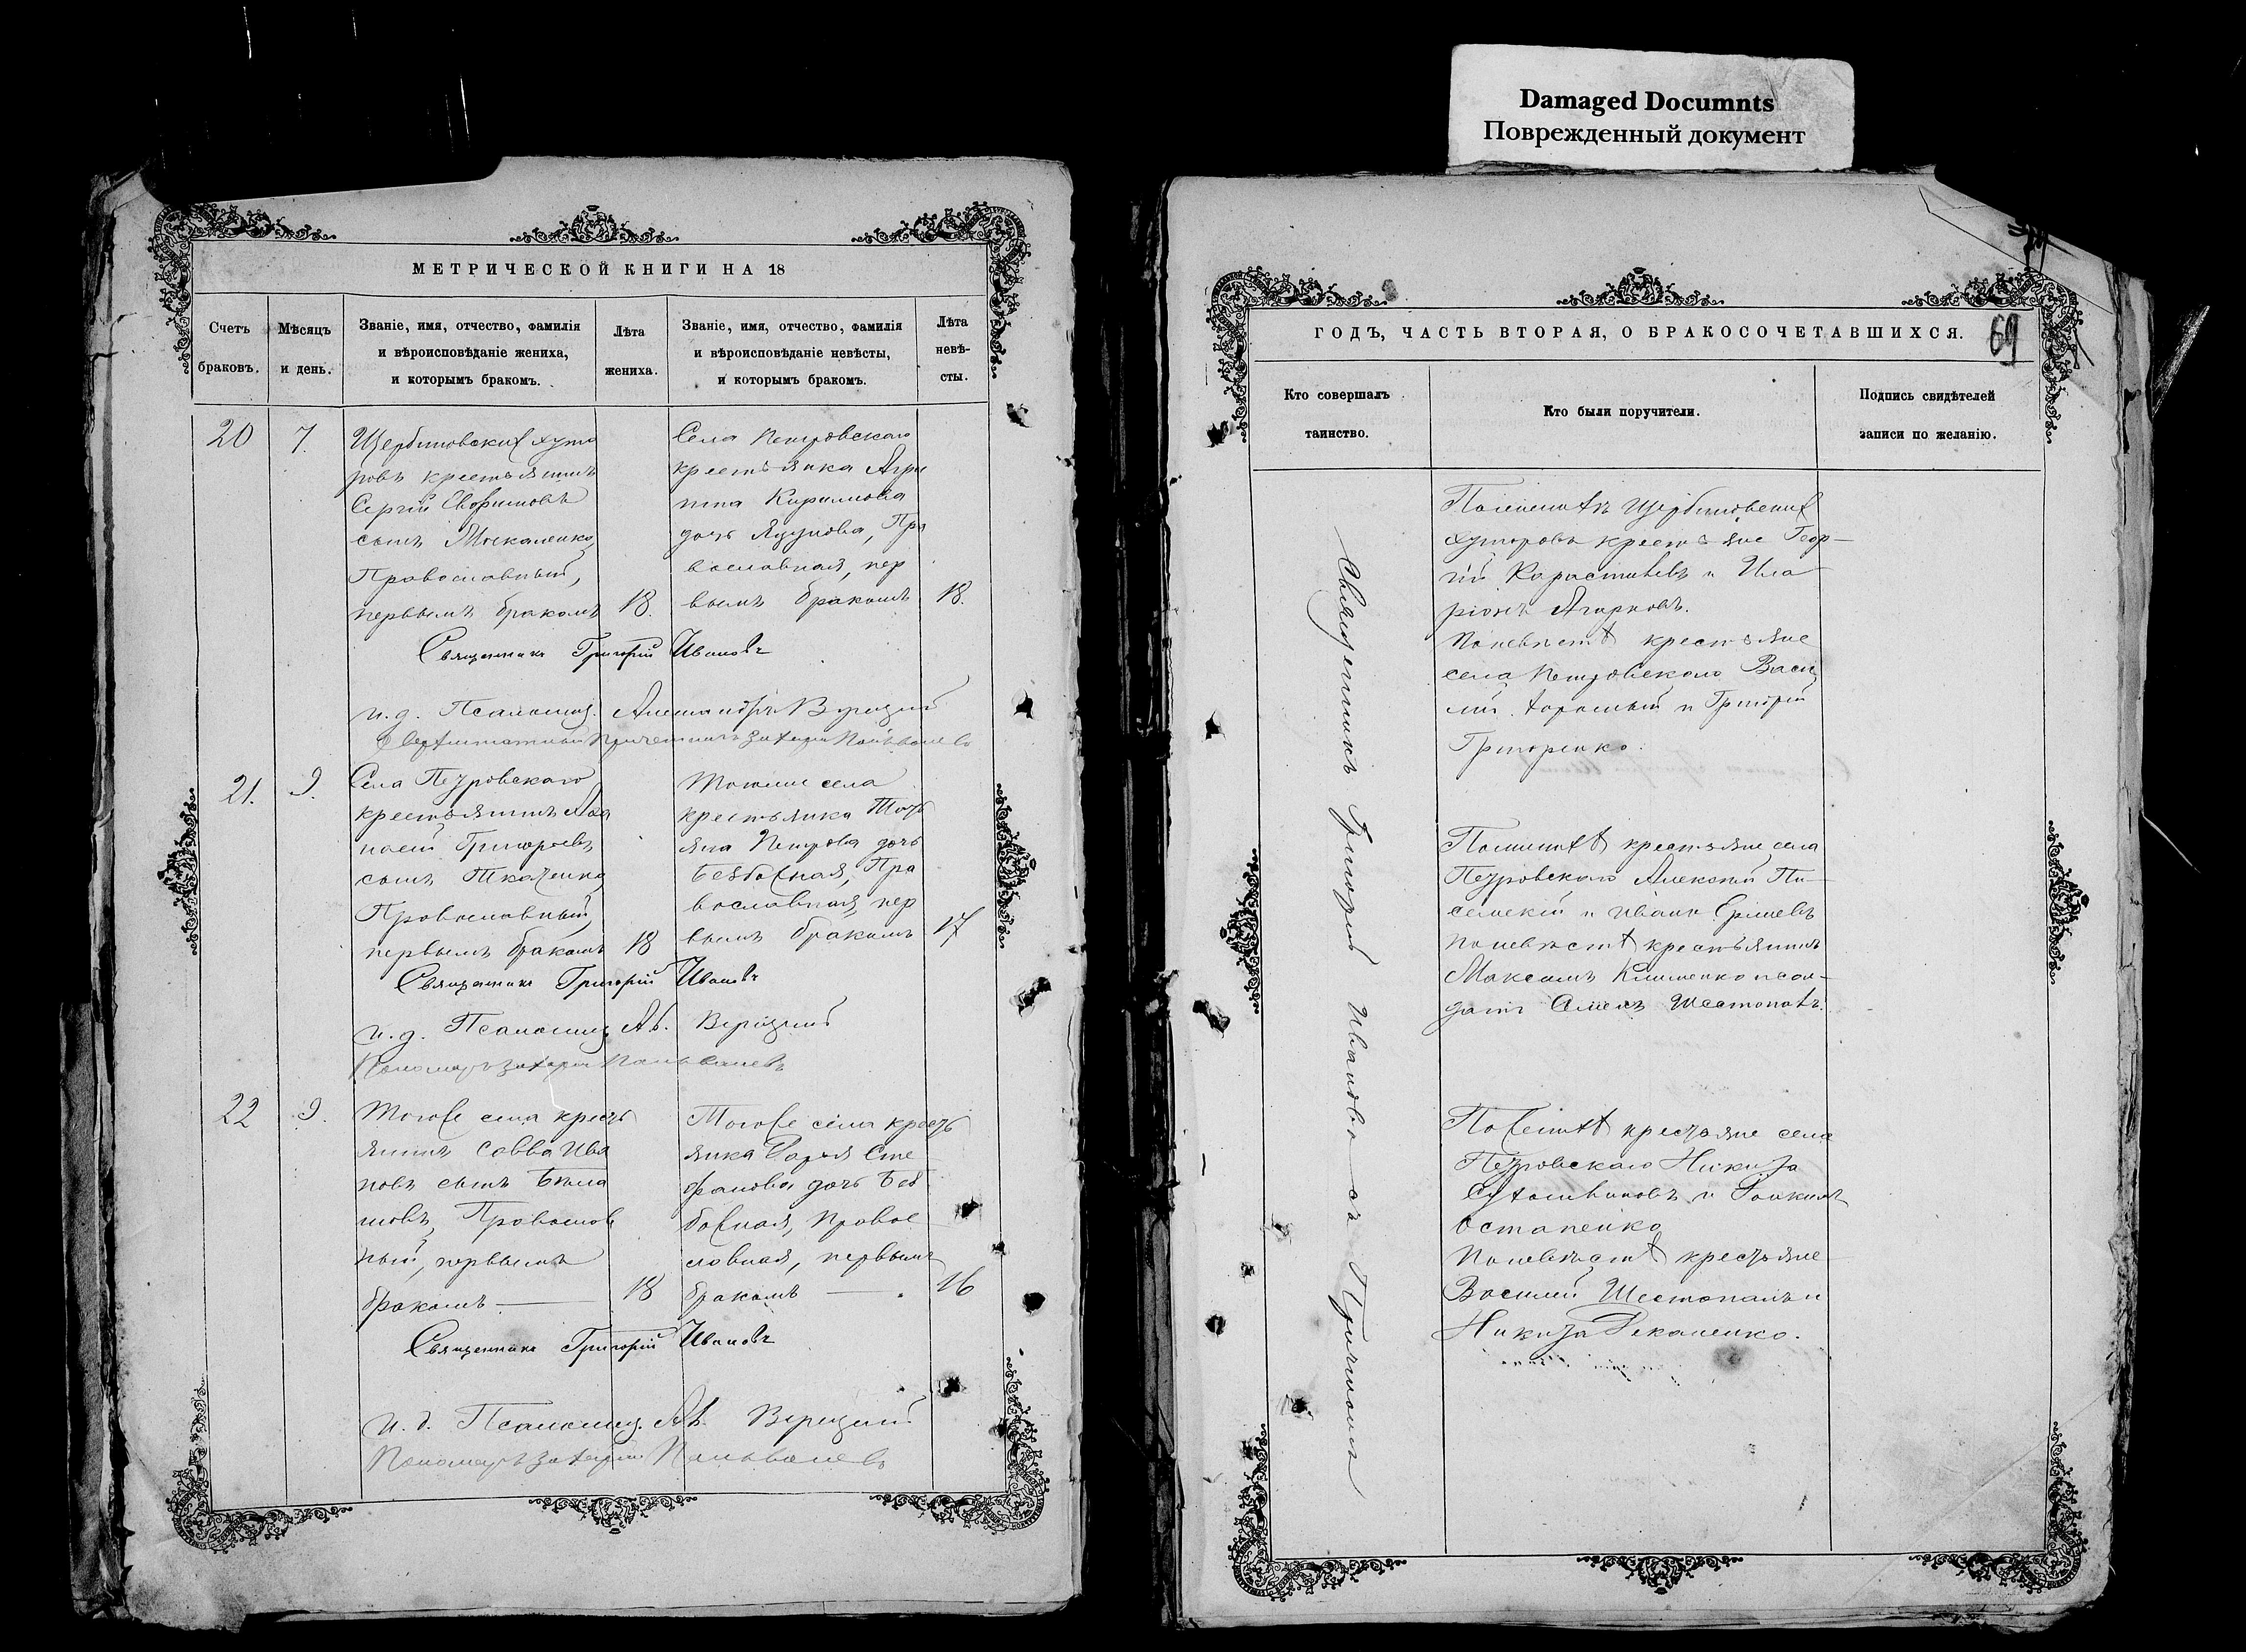 Damaged Documnts
Поврежденный документ
МЕТРИЧЕСКОЙ КНИГИ НА 18
Счетъ браковъ.
Мѣсяцъ и день.
Званіе, имя, отчество, фамилія
и вѣроисповѣданіе жениха,
и которымъ бракомъ.
Лѣта
жениха.
Званіе, имя, отчество, фамилія
и вѣроисповѣданіе невѣсты,
и которымъ бракомъ.
Лѣта
невѣ-
сты.
20
7.
Щербиновскихъ хуто
ровъ крестьянинъ
Сергій Евфимовъ
сынъ Москаленко,
Православный,
первымъ бракомъ
18.
Села Петровскаго
крестьянка Агри
пина Кирилова
дочь Яцунова, Пра
вославная, пер
вымъ бракомъ
18.
Священникъ Григорій Ивановъ
и. д. Псаломщ. Александръ Верицкій
Сверхштатный Причетникъ Захарій
21.
9.
Села Петровскаго
крестьянинъ Афа
насій Григорьевъ
сынъ Ткаченко,
Православный,
первымъ бракомъ
18
Тогоже села
крестьянка Тать
яна Петрова дочь
Безбожная, Пра
вославная, пер
вымъ бракомъ
17
Священникъ Григорій Ивановъ
и. д. Псаломщ. Ал. Верицкій
Пономарь Захарій
22
9.
Тогоже села кресть
янинъ Савва Ива
новъ сынъ Бѣла
шовъ, Православ
ный, первымъ
бракомъ
18
Тогоже села кресть
янка Дарья Сте
фанова дочь Без
божная, Правос
лавная, первымъ
бракомъ
16
Священникъ Григорій Ивановъ
и. д. Псаломщ. Ал. Верицкій
Пономарь Захарій
ГОДЪ, ЧАСТЬ ВТОРАЯ, О БРАКОСОЧЕТАВШИХСЯ.
69
Кто совершалъ
таинство.
Кто были поручители.
Подпись свидѣтелей
записи по желанію.
Священникъ Григорій Ивановъ съ Причтомъ
По женихѣ Щербиновскихъ
хуторовъ крестьяне Геор-
гій и Ила-
ріонъ
По невѣстѣ крестьяне
села Петровскаго Васи
лій и Григорій
Григоренко.
По женихѣ крестьяне села
Петровскаго Алексѣй Пи-
семскій и Иванъ Ершевъ
По невѣстѣ крестьянинъ
Максимъ Клименко и сол-
датъ Семенъ Шестопалъ.
По женихѣ крестьяне села
Петровскаго Никита
и Іоакимъ
Остапенко
По невѣстѣ крестьяне
Василій Шестопалъ и
Никита Декаленко.